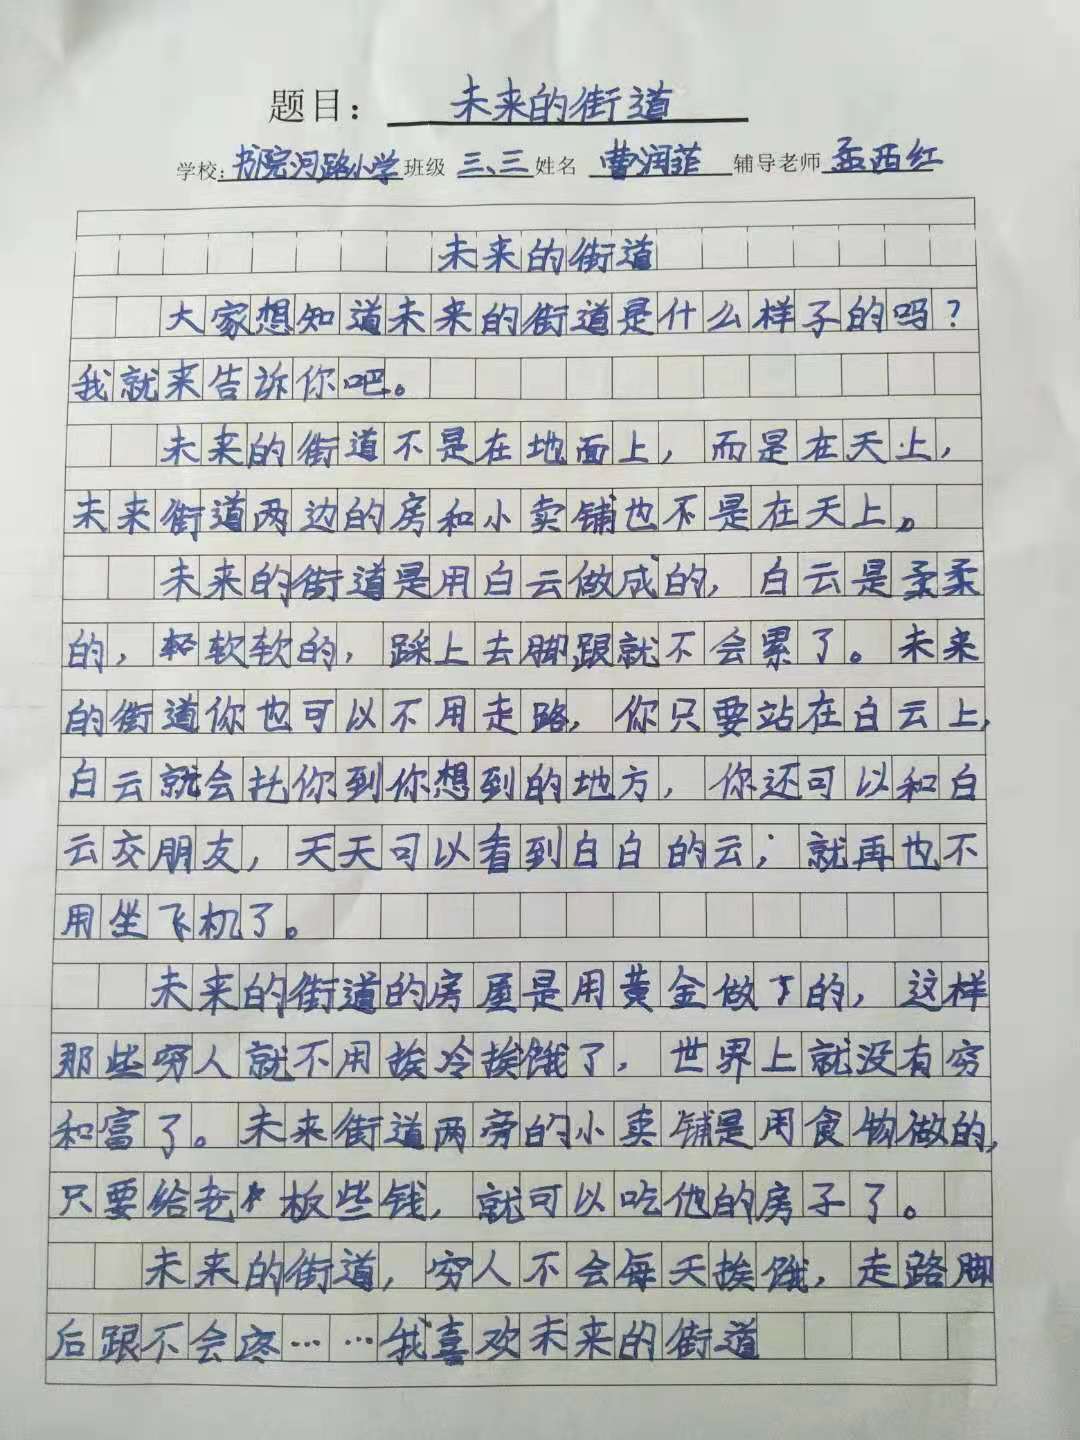 题目：未来的街道
学校：书院河路小学班级三、三姓名曹润菲辅导老师孟西红
未来的街道
大家想知道未来的街道是什么样子的吗？
我就来告诉你吧。
未来的街道不是在地面上，而是在天上，
未来街道两边的房和小卖铺也不是在天上。
未来的街道是用白云做成的，白云是柔柔
的，软软的，踩上去脚跟就不会累了。未来
的街道你也可以不用走路，你只要站在白云上，
白云就会托你到你想到的地方，你还可以和白
云交朋友，天天可以看到白白的云；就再也不
用坐飞机了。
未来的街道的房屋是用黄金做的，这样
那些穷人就不用挨冷挨饿了，世界上就没有穷
和富了。未来街道两旁的小卖铺是用食物做的，
只要给老板些钱，就可以吃他的房子了。
未来的街道，穷人不会每天挨饿，走路脚
后跟不会疼……我喜欢未来的街道